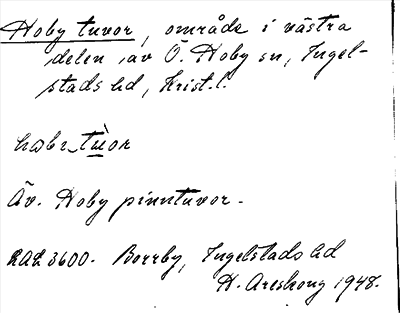 Hoby tuvor, område i västra
delen av Ö. Hoby sn, Ingel-
stads hd, Krist. l.
tùor
Äv. Hoby pinntuvor.
RAÄ 3600. Borrby, Ingelstads hd
H. Areskoug 1948.